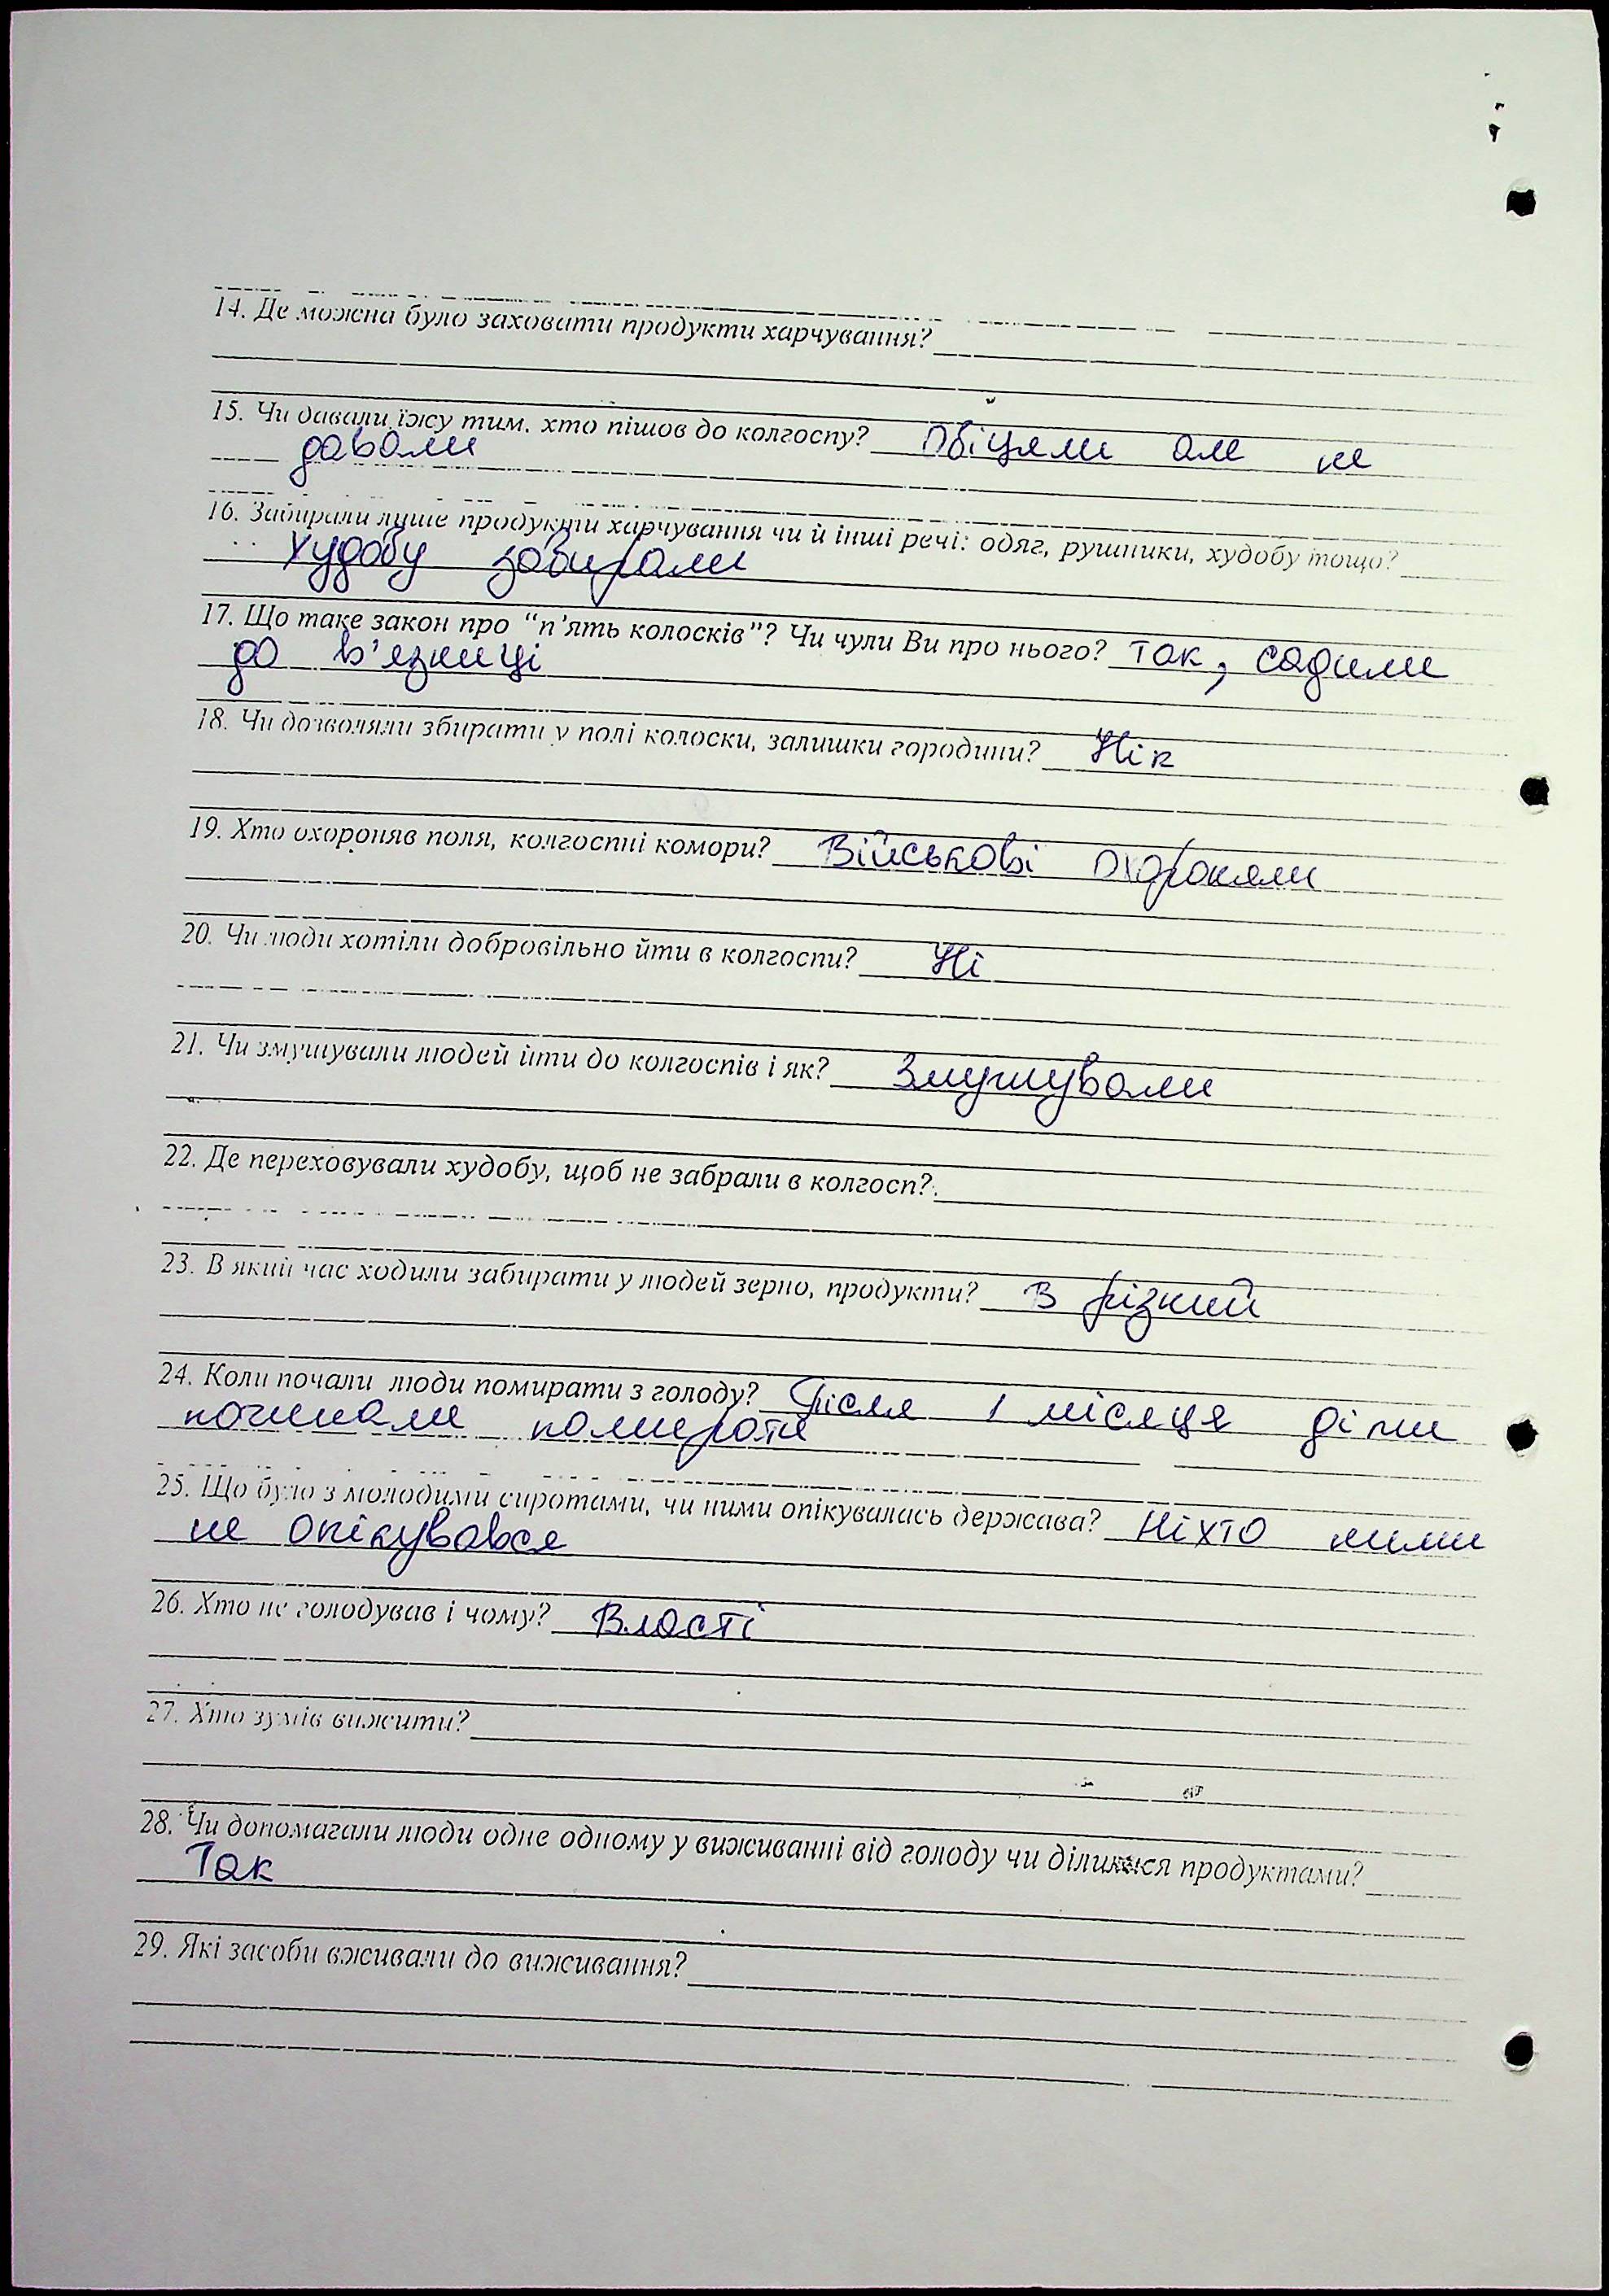 14. Де можна було заховати продукти харчування?
15. Чи давали їжу тим, хто пішов до колгоспу? Обіцяли але не
давали
16. Забирали лише продукти харчування чи й інші речі: одяг, рушники, худобу тощо?
Худобу забирали
17. Що таке закон про “п’ять колосків”? Чи чули Ви про нього? Так, садили
до в’язниці
18. Чи дозволяли збирати у полі колоски, залишки городини?
19. Хто охороняв поля, колгоспні комори? Військові охороняли
20. Чи люди хотіли добровільно йти в колгоспи? Ні
21. Чи змушували людей йти до колгоспів і як? Змушували
22. Де переховували худобу, щоб не забрали в колгосп?
23. В який час ходили забирати у людей зерно, продукти? В різний
24. Коли почали люди помирати з голоду? Після 1 місяця
починали помирати
25. Що було з молодими сиротами, чи ними опікувалась держава? Ніхто ними
не опікувався
26. Хто не голодував і чому? Власті
27. Хто зумів вижити?
28. Чи допомагали люди одне одному у виживанні від голоду чи ділилися продуктами?
Так
29. Які засоби вживали до виживання?